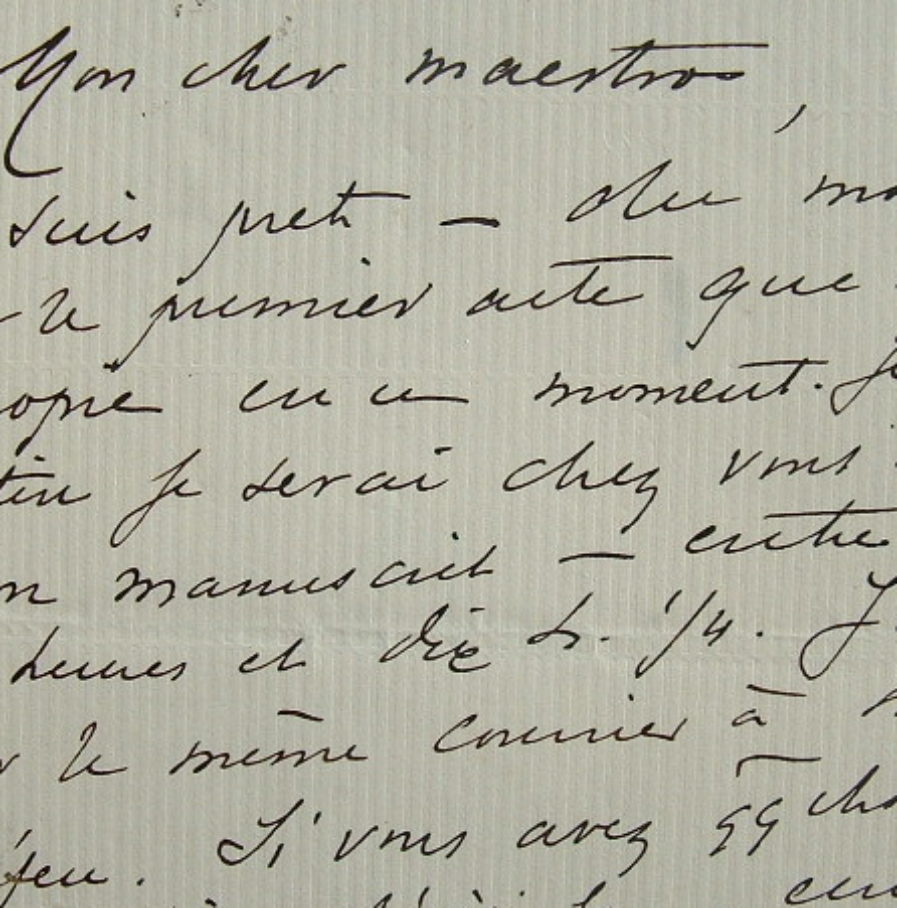 Mon cher maestros,
suis pret — du mo
le premier acte que
opie en ce moment. Je
tin je serai chez vous
n manuscrit — entre
heures et dix h. 1/4. J
r le même courrier à
feu. Si vous avez qq cho